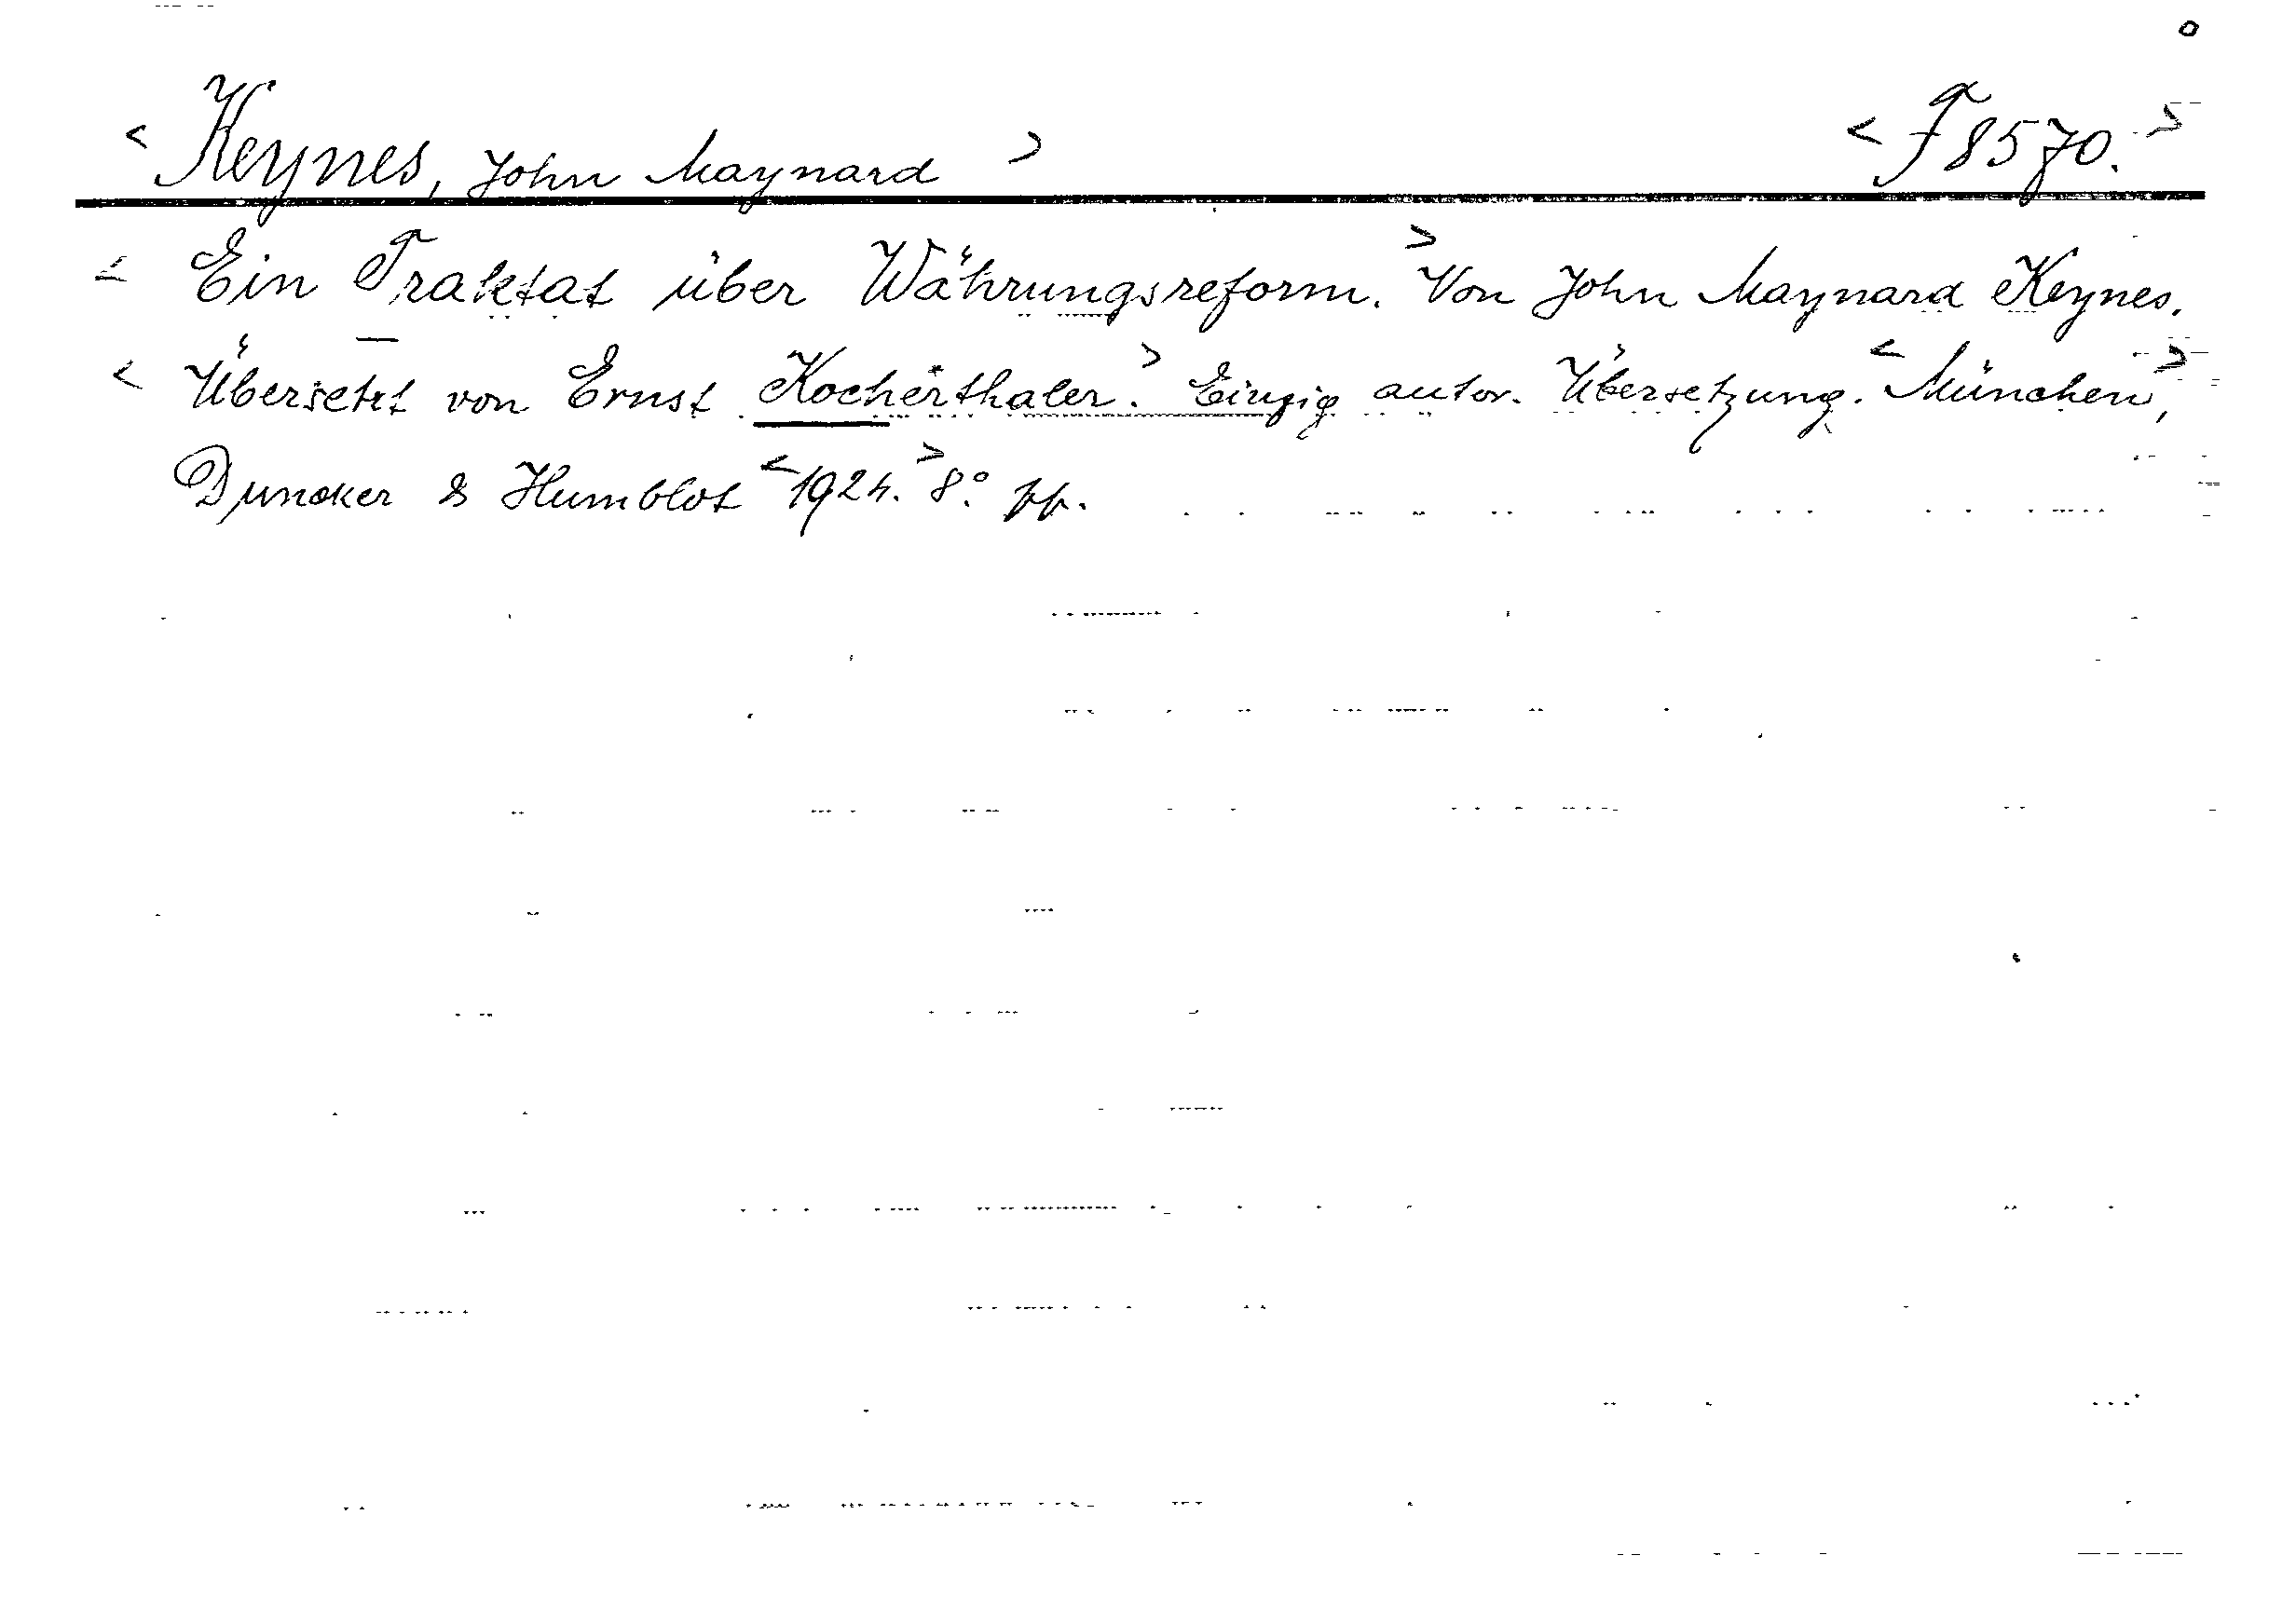 < Keynes, John Maynard > < F 8570. >
< Ein Traktat über Währungsreform. > Von John Maynard Keynes.
< Übersetzt von Ernst Kocherthaler. > Einzig autor. Übersetzung. < München, >
Duncker & Humblot < 1924. > 8° pp.